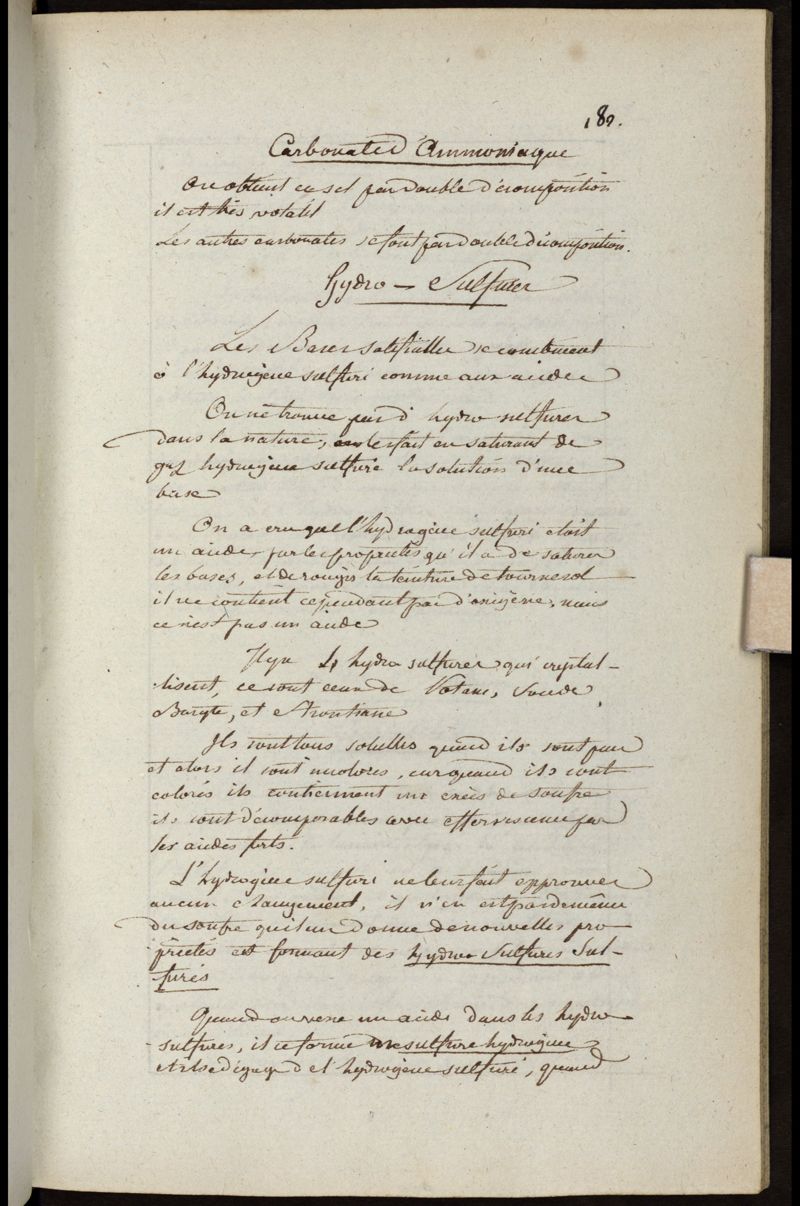 182.
Carbonate d'Ammoniaque
On obtient ce sel par double décomposition
il est très volatil
Les autres carbonates se font par double décomposition.
Hydro — Sulfures
Les Bases salifiables se combinent
à l'hydrogène sulfuré comme aux acides
On ne trouve pas d'hydro sulfures
dans la nature, on les fait en saturant de
gaz hydrogène sulfuré la solution d'une
base
On a cru que l'hydrogène sulfuré etait
un acide par les propriétés qu'il a de saturer
les bases, et de rougir la teinture de tournesol
il ne contient cependant pas d'oxigène, mais
ce n'est pas un acide
Il y a 4 hydro sulfures qui crystal-
-lisent, ce sont ceux de Potasse, Soude,
Baryte, et Strontiane
Ils sont tous solubles quand ils sont purs
et alors il sont incolores, car quand ils sont
colorés ils contiennent un excès de soufre
ils sont décomposables avec effervescence par
les acides forts.
L'hydrogène sulfuré ne leur fait eprouver
aucun changement, il n'en est pas de même
du soufre qui leur donne de nouvelles pro-
-priétés et formant des hydro Sulfures Sul-
-furés
Quand on verse un acide dans les hydro-
-sulfures, il se forme un sulfure hydrogène
et il se dégage de l'hydrogène sulfuré, quand